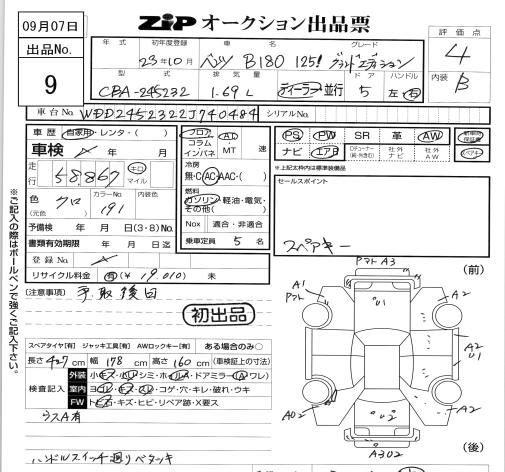 09月07日
出品No.
9
ZiP オークション出品票
評価点
4
内装 B
年式 初年度登録 車名 グレード
23年10月 ベンツ B180 125! グランドエディション
型式 排気量 ドア ハンドル
CBA-245232 1.69L ディーラー・並行 5 左・右
車台No. WDD2452322J740484 シリアルNo.
車歴 自家用・レンタ・( )
車検 年 月
走行 58,867 キロ マイル
色(元色) クロ カラーNo. 191 内装色
予備検 年 月 日(3・8)No.
書類有効期限 年 月 日迄
登録No.
リサイクル料金 有(¥19,010) 未
フロア コラム インパネ AT MT 速
冷房
無・C・AC・AAC・( )
燃料
ガソリン・軽油・電気・その他( )
Nox 適合・非適合
乗車定員 5 名
PS PW SR 革 AW
ナビ エアB 社外ナビ 社外AW
新車時保証書
スペアキー
*上記太枠内は標準装備品
セールスポイント
スペアキー
(注意事項) 予取後日
初出品
スペアタイヤ[有] ジャッキ工具[有] AWロックキー[有] ある場合のみ○
長さ 427 cm 幅 178 cm 高さ 160 cm (車検証上の寸法)
検査記入
外装 小キズ・小凹・シミ・ホイールA・ドアミラー(A ワレ)
室内 ヨゴレ・キズ・スレ・コゲ・穴・キレ・破れ・ウキ
FW トビ・キズ・ヒビ・リペア跡・X要ス
ウスA有
ハンドルスイッチ廻りベタツキ
(前)
フマトA3
A1
A2
U1
A2
U1
A2
U2
A302
(後)
※ご記入の際はボールペンで強くご記入下さい。